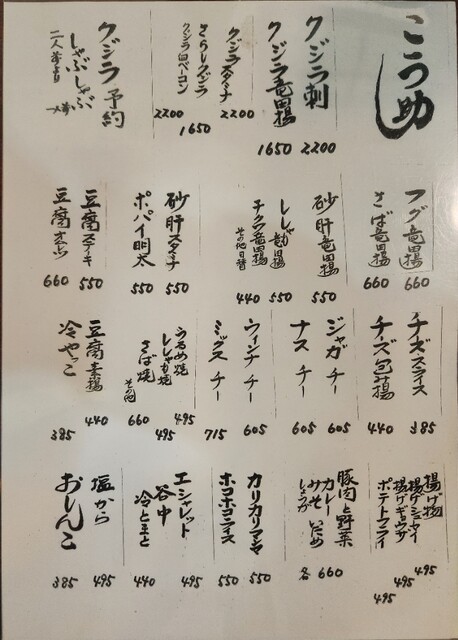 こう助
クジラ刺 2200
クジラ竜田揚 1650
クジラスタミナ 2200
さらしクジラ 1650
クジラ白ベーコン 2200
クジラ 予約
しゃぶしゃぶ
二人前より
フグ竜田揚 660
さば竜田揚 660
砂肝竜田揚 550
ししゃも竜田揚 550
チクワ竜田揚 440
その他日替
砂肝スタミナ 550
ポパイ明太 550
豆腐ステーキ 550
豆腐オムレツ 660
チーズスライス 385
チーズ包み揚 440
ジャガチー 605
ナスチー 605
ウィンナチー 605
ミックスチー 715
うるめ焼 495
ししゃも焼 495
さば焼 660
その他
豆腐素揚 440
冷やっこ 385
揚げ物
揚げシューマイ 495
揚げギョウザ 495
ポテトフライ 495
豚肉と野菜
カレー
みそ いため
しょうが
各 660
カリカリピーマン 550
ホコホコライス 550
エシャレット 495
谷中
冷とまと 440
塩から 495
おしんこ 385